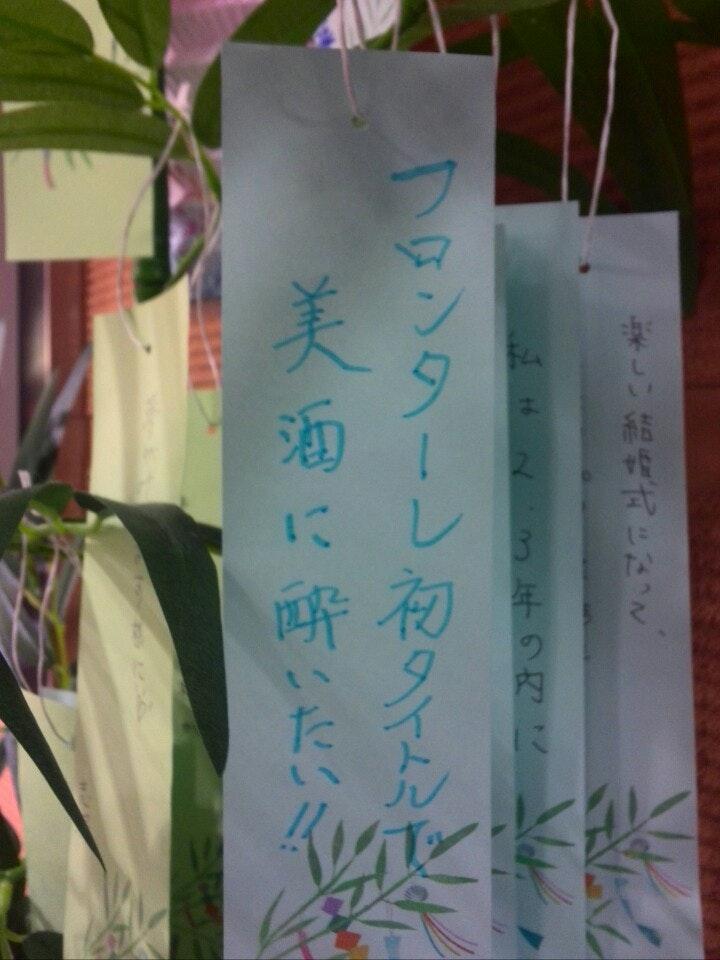 フロンターレ初タイトルで
美酒に酔いたい!!
私は2.3年の内に
楽しい結婚式になって、